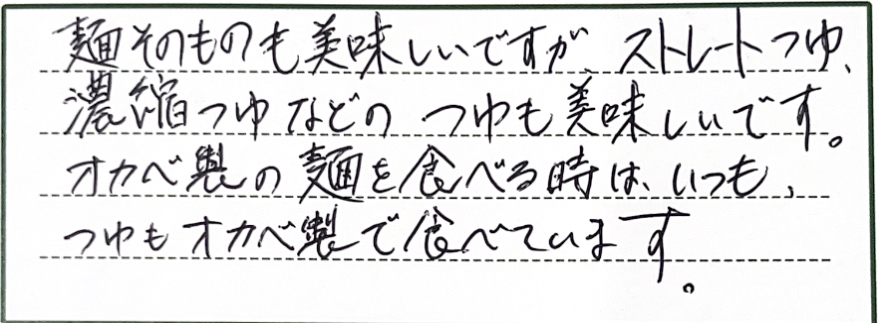 麺そのものも美味しいですが、ストレートつゆ、
濃縮つゆなどの つゆも美味しいです。
オカベ製の麺を食べる時は、いつも、
つゆもオカベ製で食べています。